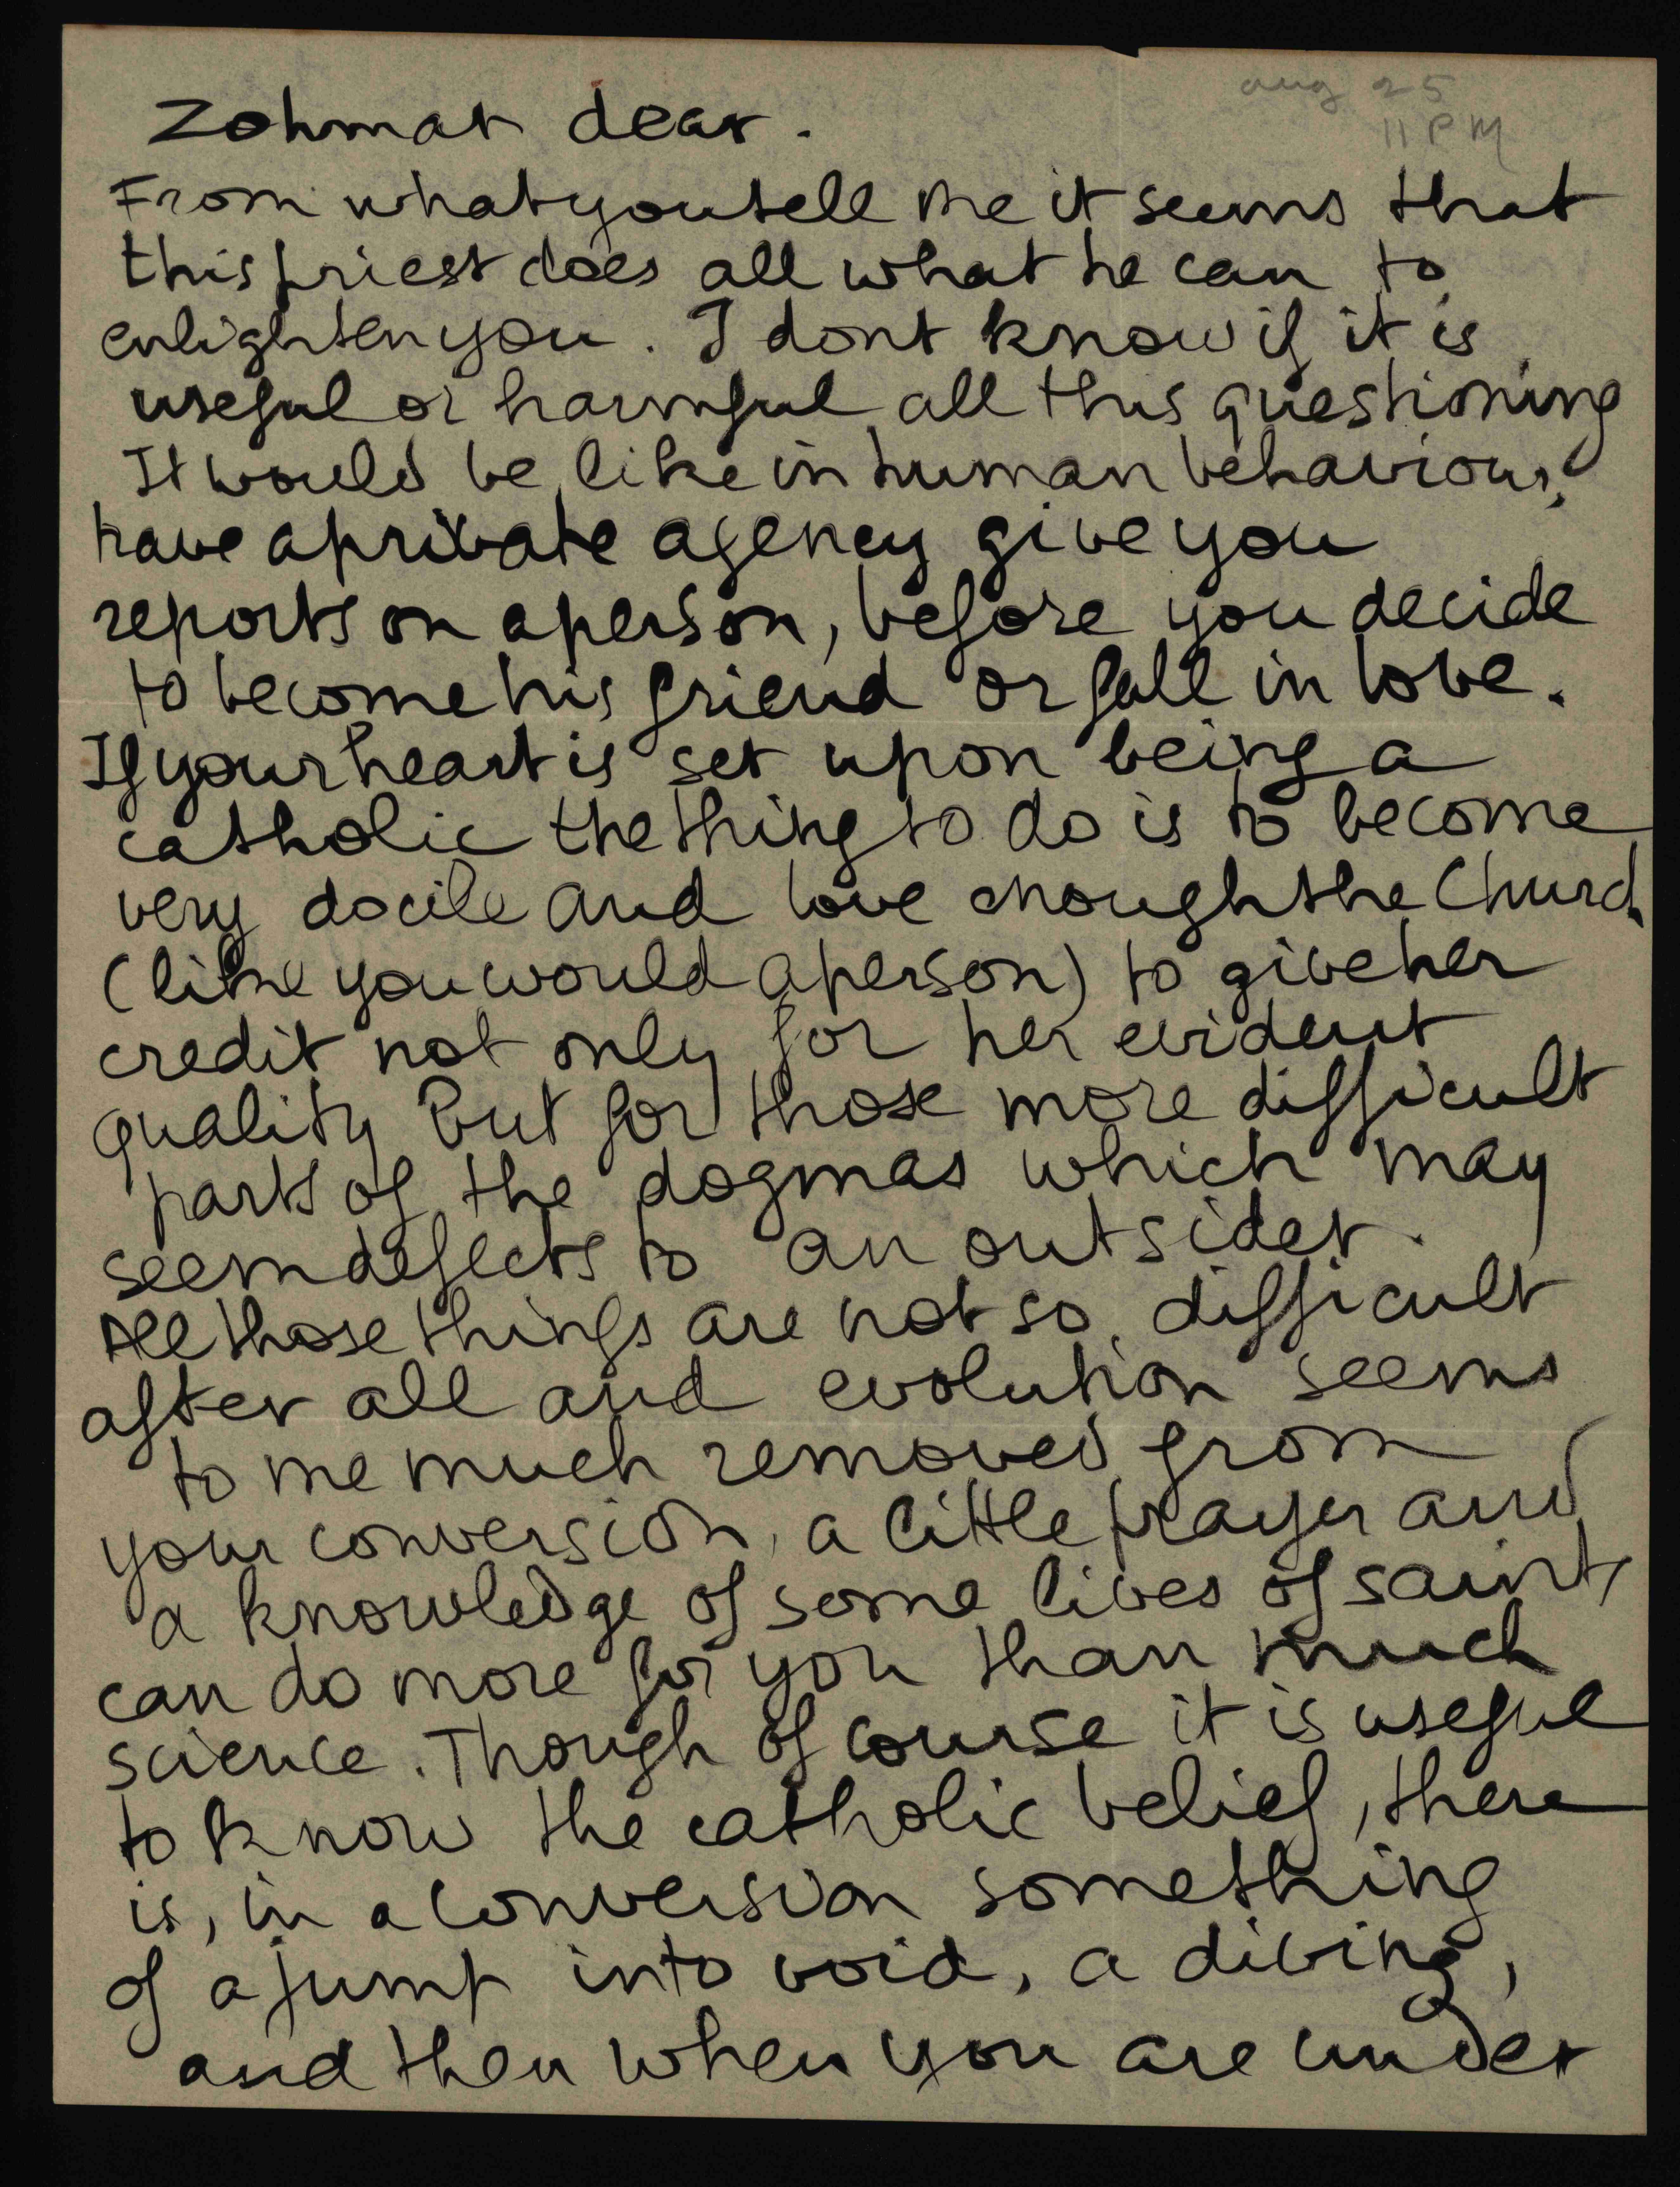 aug 25
11 PM
Zohmah dear.
From what you tell me it seems that
this priest does all what he can to
enlighten you. I dont know if it is
useful or harmful all this questioning
It would be like in human behaviour,
have a private agency give you
reports on a person, before you decide
to become his friend or fall in love.
If your heart is set upon being a
catholic the thing to do is to become
very docile and love enough the Church
(like you would a person) to give her
credit not only for her evident
quality but for those more difficult
parts of the dogmas which may
seem defects to an outsider.
All those things are not so difficult
after all and evolution seems
to me much removed from
your conversion, a little prayer and
a knowledge of some lives of saints
can do more for you than much
science. Though of course it is useful
to know the catholic belief, there
is, in a conversion something
of a jump into void, a diving,
and then when you are under